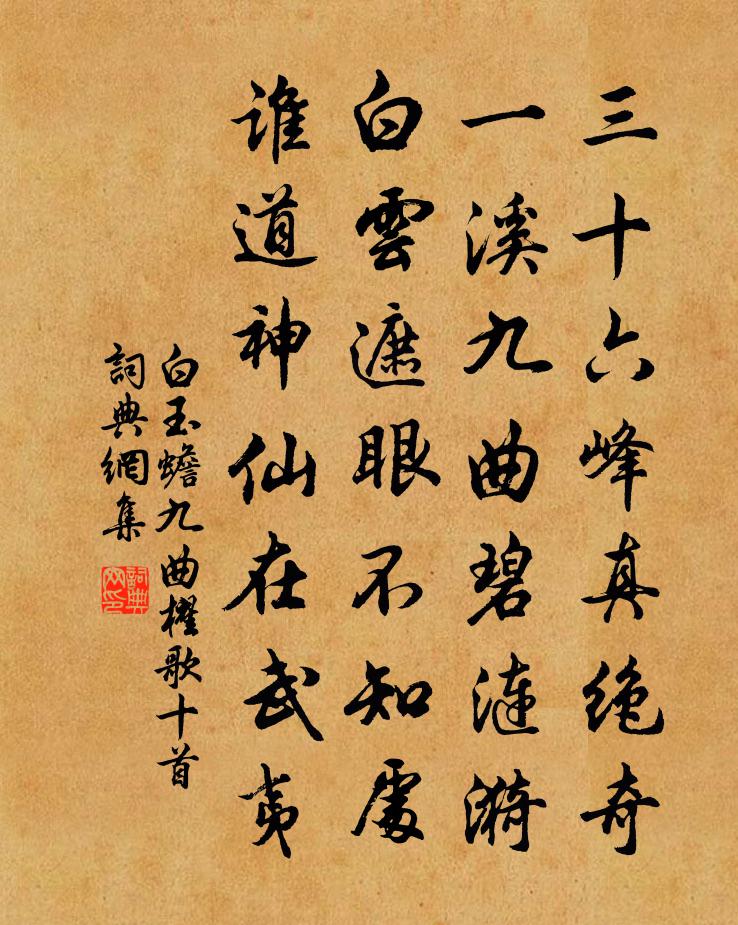 三十六峰真绝奇
一溪九曲碧漣漪
白雲遮眼不知處
誰道神仙在武夷
白玉蟾九曲櫂歌十首
詞典網集
詞典网印